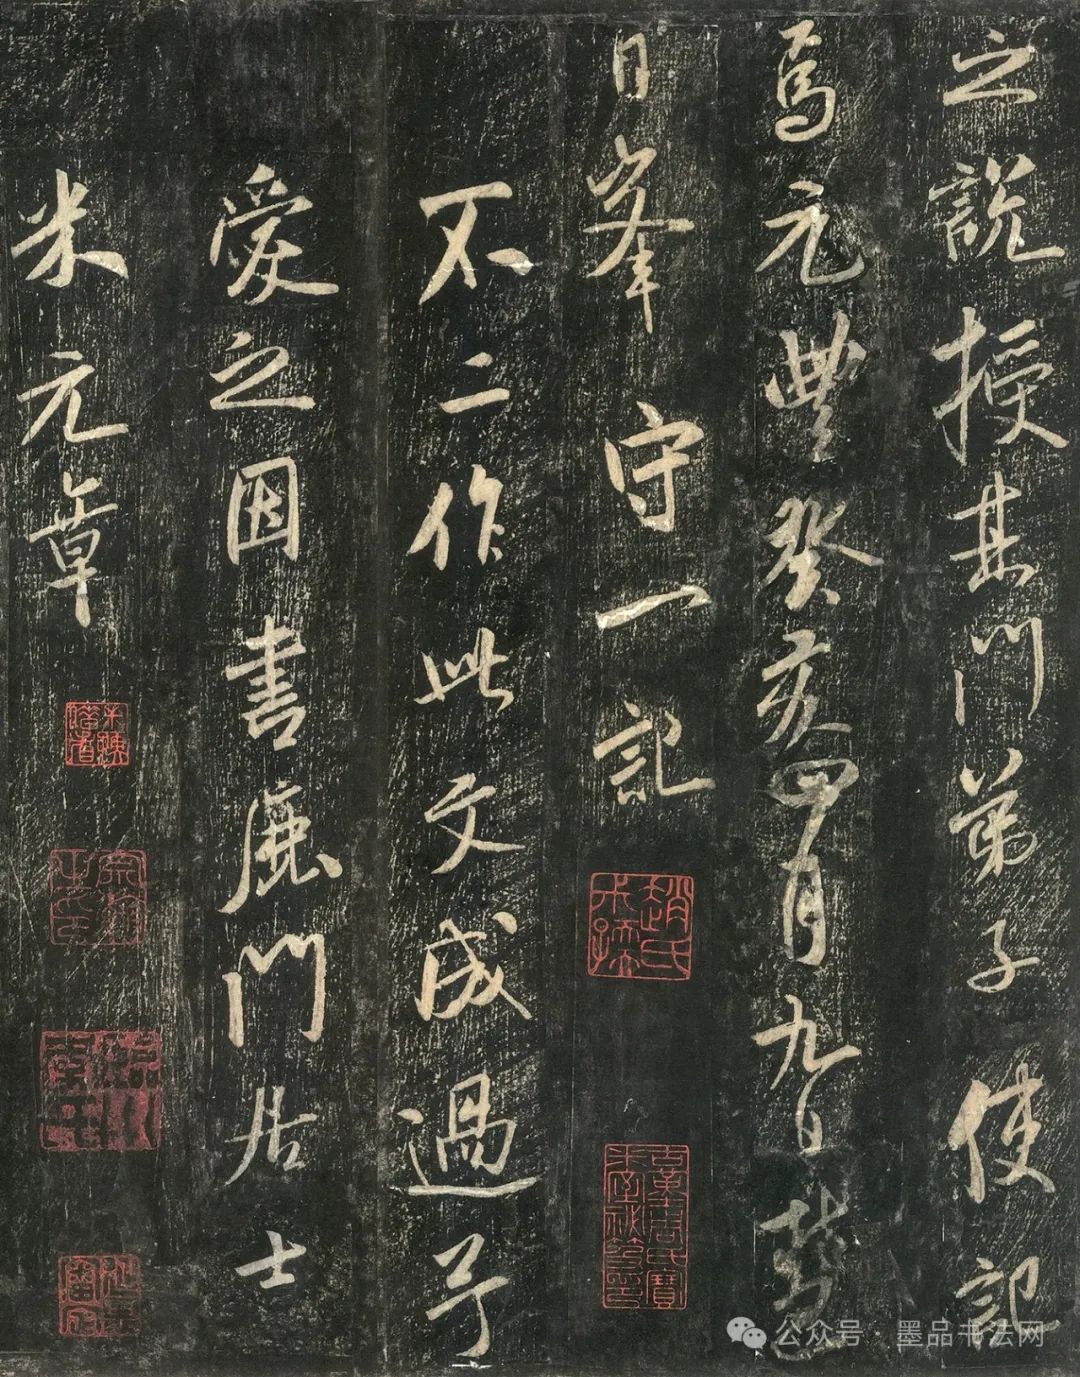 之說授其門弟子使記
焉元豐癸亥四月九日慧
日峯 守一記
不二作此文成過予
愛之因書鹿門居士
米元章
公众号 · 墨品书法网